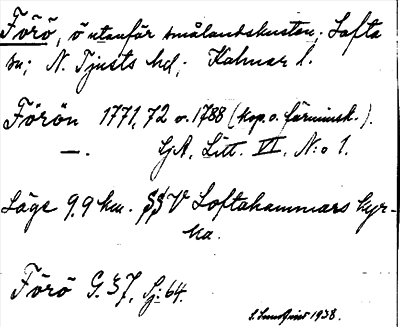 Förö, ö utanför smålandskusten; Lofta
sn; N. Tjusts hd; Kalmar l.
Förön 1771, 72 o. 1788 (kop. o. förminsk.).
—. LjA. Litt. VI. N:o 1.
Läge 9,9 km. SSV Loftahammars kyr-
ka.
Förö G. 37, Sj: 64.
1938.